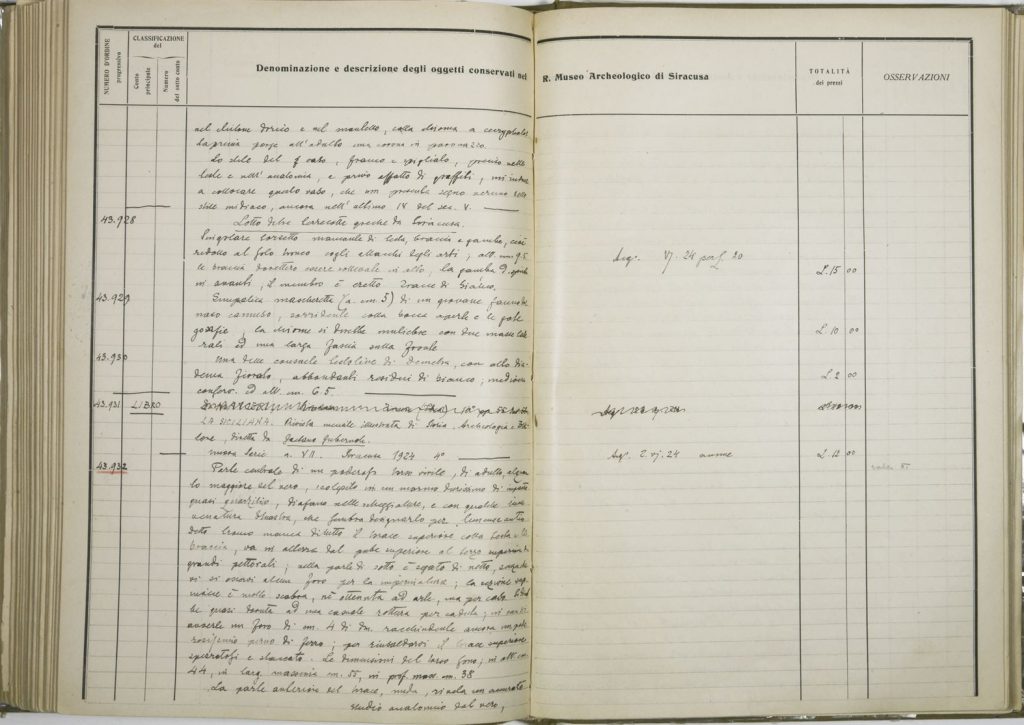 NUMERO D'ORDINE
progressivo
CLASSIFICAZIONE
del
Conto
principale
Numero
del sotto conto
Denominazione e descrizione degli oggetti conservati nel R. Museo Archeologico di Siracusa
TOTALITÀ
dei prezzi
OSSERVAZIONI
nel chitone dorico e nel mantello, colla chioma a
La prima porge all'adulto una corona in paonazzo.
Lo stile del vaso, franco e spigliato, preciso nelle
teste e nell'anatomia, e privo affatto di graffiti, mi induce
a collocare questo vaso, che non presenta segno veruno dello
stile midiaco, ancora nell'ultimo IV del sec. V.
43.928
Lotto di tre terrecotte greche da Siracusa.
Singolare torsetto mancante di testa, braccia e gambe, cioè
ridotto al solo tronco cogli attacchi degli arti; alt. cm. 9.5
le braccia dovettero essere sollevate in alto, la gamba D.
in avanti, il membro è eretto. Tracce di bianco.
Acq. VI. 24 per £ 20
L. 15 00
43.929
Simpatica mascheretta (a. cm 5) di un giovane faunetto
naso camuso, sorridente colla bocca aperta e le gote
gonfie, la chioma si direbbe muliebre con due masse late
rali ed una larga fascia sulla fronte
L. 10 00
43.930
Una delle consuete testoline di Demetra, con alto dia
dema fiorato, abbondanti residui di bianco; mediocre
conserv. d alt. cm. 6.5.
L. 2 00
43.931 LIBRO
LA SICILIANA. Rivista mensile illustrata di Storia, Archeologia e Fol
lore, diretta da Gaetano Gubernale.
nuova Serie a. VII. Siracusa 1924 4°
Acq. 2. VI. 24
L. 12 00
43.932
Parte centrale di un poderoso torso virile, di adulto,
lo maggiore del vero, scolpito in un marmo durissimo di
quasi quarzitico, diafano nelle scheggiature, e con qualche
venatura
detto tronco manca di tutto il torace superiore colla testa e le
braccia, va in altezza dal pube superiore al terzo superiore dei
grandi pettorali; nella parte di sotto è segato di netto, senza che
vi si osservi alcun foro per la imperniatura; la sezione sup.
invece è molto scabra, nè ottenuta ad arte, ma
be quasi dovuta ad una casuale rottura per caduta; vi si
avverte un foro di cm. 4 di dm. racchiudente ancora un
perno di ferro; per rinsaldarvi il torace superiore
spezzatosi e staccato. Le dimensioni del torso sono; in alt. cm.
44, in larg. massima cm. 55, in prof. mass. cm. 38
La parte anteriore del torace, nuda, rivela un accurato
studio anatomico dal vero,